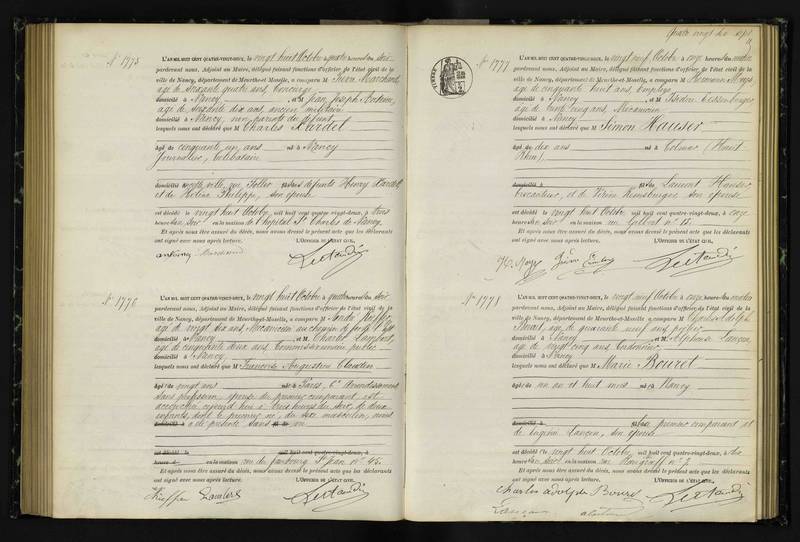 N° 1775
L'AN MIL HUIT CENT QUATRE-VINGT-DEUX, le vingt huit Octobre à quatre heures du soir
pardevant nous, Adjoint au Maire, délégué faisant fonctions d'officier de l'état civil de la
ville de Nancy, département de Meurthe-et-Moselle, a comparu M Pierre Marchand
âgé de soixante quatre ans, Concierge
domicilié à Nancy, et M Jean Joseph Antoine,
âgé de soixante dix ans, ancien militaire
domicilié à Nancy, non parents du défunt
lesquels nous ont déclaré que M Charles Lardel
âgé de cinquante un ans né à Nancy
Journalier, Célibataire
en cette ville, rue fils des défunts Henry Lardel
et de Hélène Philippe, son épouse
est décédé le vingt huit Octobre, mil huit cent quatre-vingt-deux, à trois
heures du soir en la maison de l'hôpital St Charles de Nancy.
Et après nous être assuré du décès, nous avons dressé le présent acte que les déclarants
ont signé avec nous après lecture. L'OFFICIER DE L'ÉTAT CIVIL,
antoine Marchand
N° 1776
L'AN MIL HUIT CENT QUATRE-VINGT-DEUX, le vingt huit Octobre à quatre heures du soir
pardevant nous, Adjoint au Maire, délégué faisant fonctions d'officier de l'état civil de la
ville de Nancy, département de Meurthe-et-Moselle, a comparu M
âgé de vingt six ans Mécanicien au chemin de fer de l'Est
domicilié à Nancy, et M Charles Lambert,
âgé de cinquante deux ans, Commissionnaire public
domicilié à Nancy
lesquels nous ont déclaré que M Françoise Augustine Claudin
âgée de vingt ans née à Paris, 6e Arrondissement
sans profession, épouse du premier comparant est
accouchée aujourd'hui à trois heures du soir, de deux
enfants, dont le premier né, du sexe masculin, nous
a été présenté sans vie
en la maison rue du faubourg St Jean n° 45.
Et après nous être assuré du décès, nous avons dressé le présent acte que les déclarants
ont signé avec nous après lecture. L'OFFICIER DE L'ÉTAT CIVIL,
Lambert
Quatre vingt dix sept
N° 1777
L'AN MIL HUIT CENT QUATRE-VINGT-DEUX, le vingt neuf Octobre à onze heures du matin
pardevant nous, Adjoint au Maire, délégué faisant fonctions d'officier de l'état civil de la
ville de Nancy, département de Meurthe-et-Moselle, a comparu M Hermann Mays
âgé de cinquante huit ans Employé
domicilié à Nancy, et M Isidore
âgé de trente cinq ans, Mécanicien
domicilié à Nancy
lesquels nous ont déclaré que M Simon Hauser
âgé de dix ans né à Colmar (Haut
Rhin)
fils de Laurent Hauser
brocanteur, et de son épouse
est décédé le vingt huit Octobre, mil huit cent quatre-vingt-deux, à onze
heures du soir en la maison rue Gilbert n° 15.
Et après nous être assuré du décès, nous avons dressé le présent acte que les déclarants
ont signé avec nous après lecture. L'OFFICIER DE L'ÉTAT CIVIL,
N° 1778
L'AN MIL HUIT CENT QUATRE-VINGT-DEUX, le vingt neuf Octobre à onze heures du matin
pardevant nous, Adjoint au Maire, délégué faisant fonctions d'officier de l'état civil de la
ville de Nancy, département de Meurthe-et-Moselle, a comparu M Charles Adolphe
Bouret, âgé de quarante neuf ans, potier
domicilié à Nancy, et M Alphonse Lançon,
âgé de vingt cinq ans, Cordonnier
domicilié à Nancy
lesquels nous ont déclaré que M Marie Bouret
âgée de un an et huit mois née à Nancy
fille du premier comparant et
de Eugénie Lançon, son épouse
est décédée le vingt huit Octobre, mil huit cent quatre-vingt-deux, à dix
heures du soir en la maison rue n° 7.
Et après nous être assuré du décès, nous avons dressé le présent acte que les déclarants
ont signé avec nous après lecture. L'OFFICIER DE L'ÉTAT CIVIL,
Charles adolphe Bouret